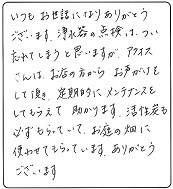 いつもお世話になりありがとう
ございます。浄水器の点検は、つい
忘れてしまうと思いますが、アクアス
さんは、お店の方からお声がけを
して頂き、定期的にメンテナンスを
してもらえて助かります。活性炭も
必ずもらっていて、お庭の畑に
使わせてもらっています。ありがとう
ございます